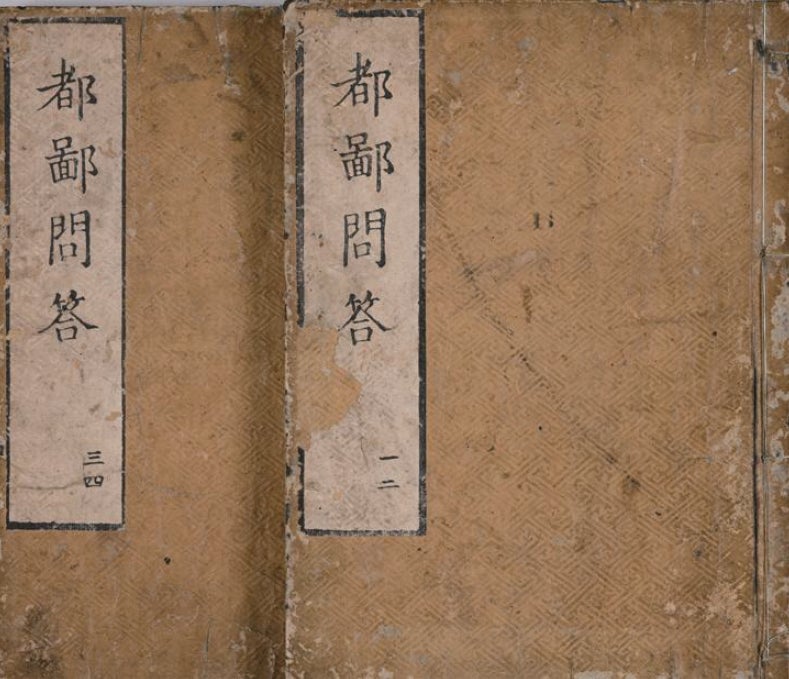 都鄙問答
一二
都鄙問答
三四